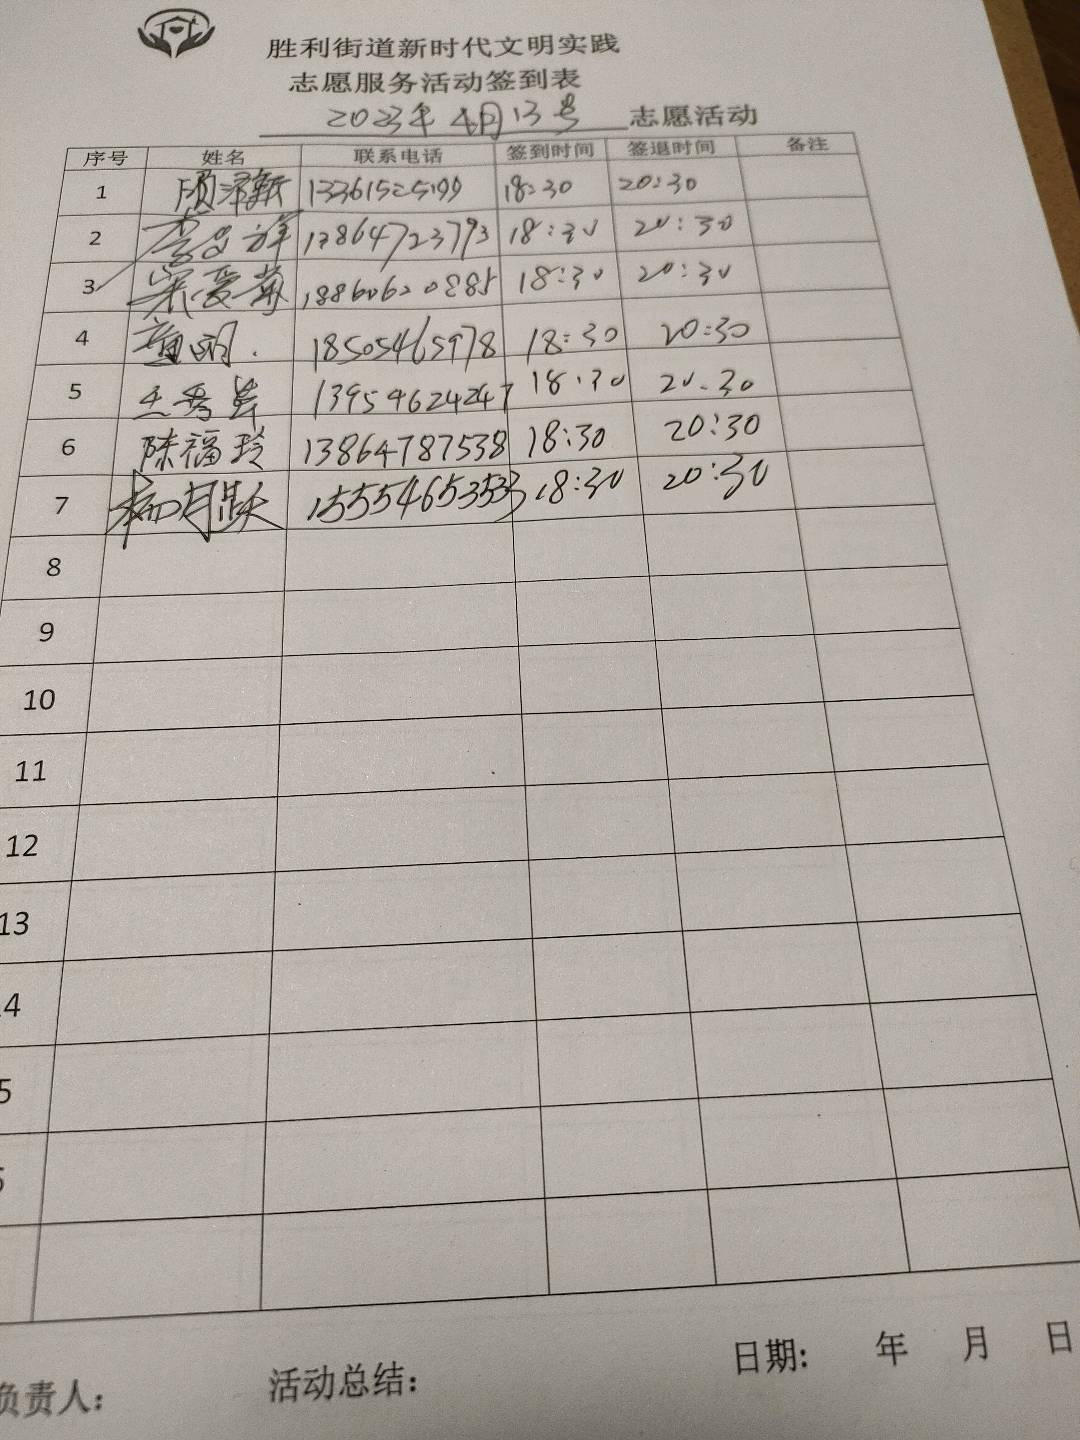 胜利街道新时代文明实践
志愿服务活动签到表
2023年4月13号 志愿活动
序号 姓名 联系电话 签到时间 签退时间 备注
1 13361525199 18:30 20:30
2 13864723793 18:30 20:30
3 爱 18860620885 18:30 20:30
4 明 18505465978 18:30 20:30
5 王秀 13954624247 18:30 20:30
6 陈福玲 13864787538 18:30 20:30
7 15554653533 18:30 20:30
8
9
10
11
12
13
4
5
负责人: 活动总结: 日期: 年 月 日